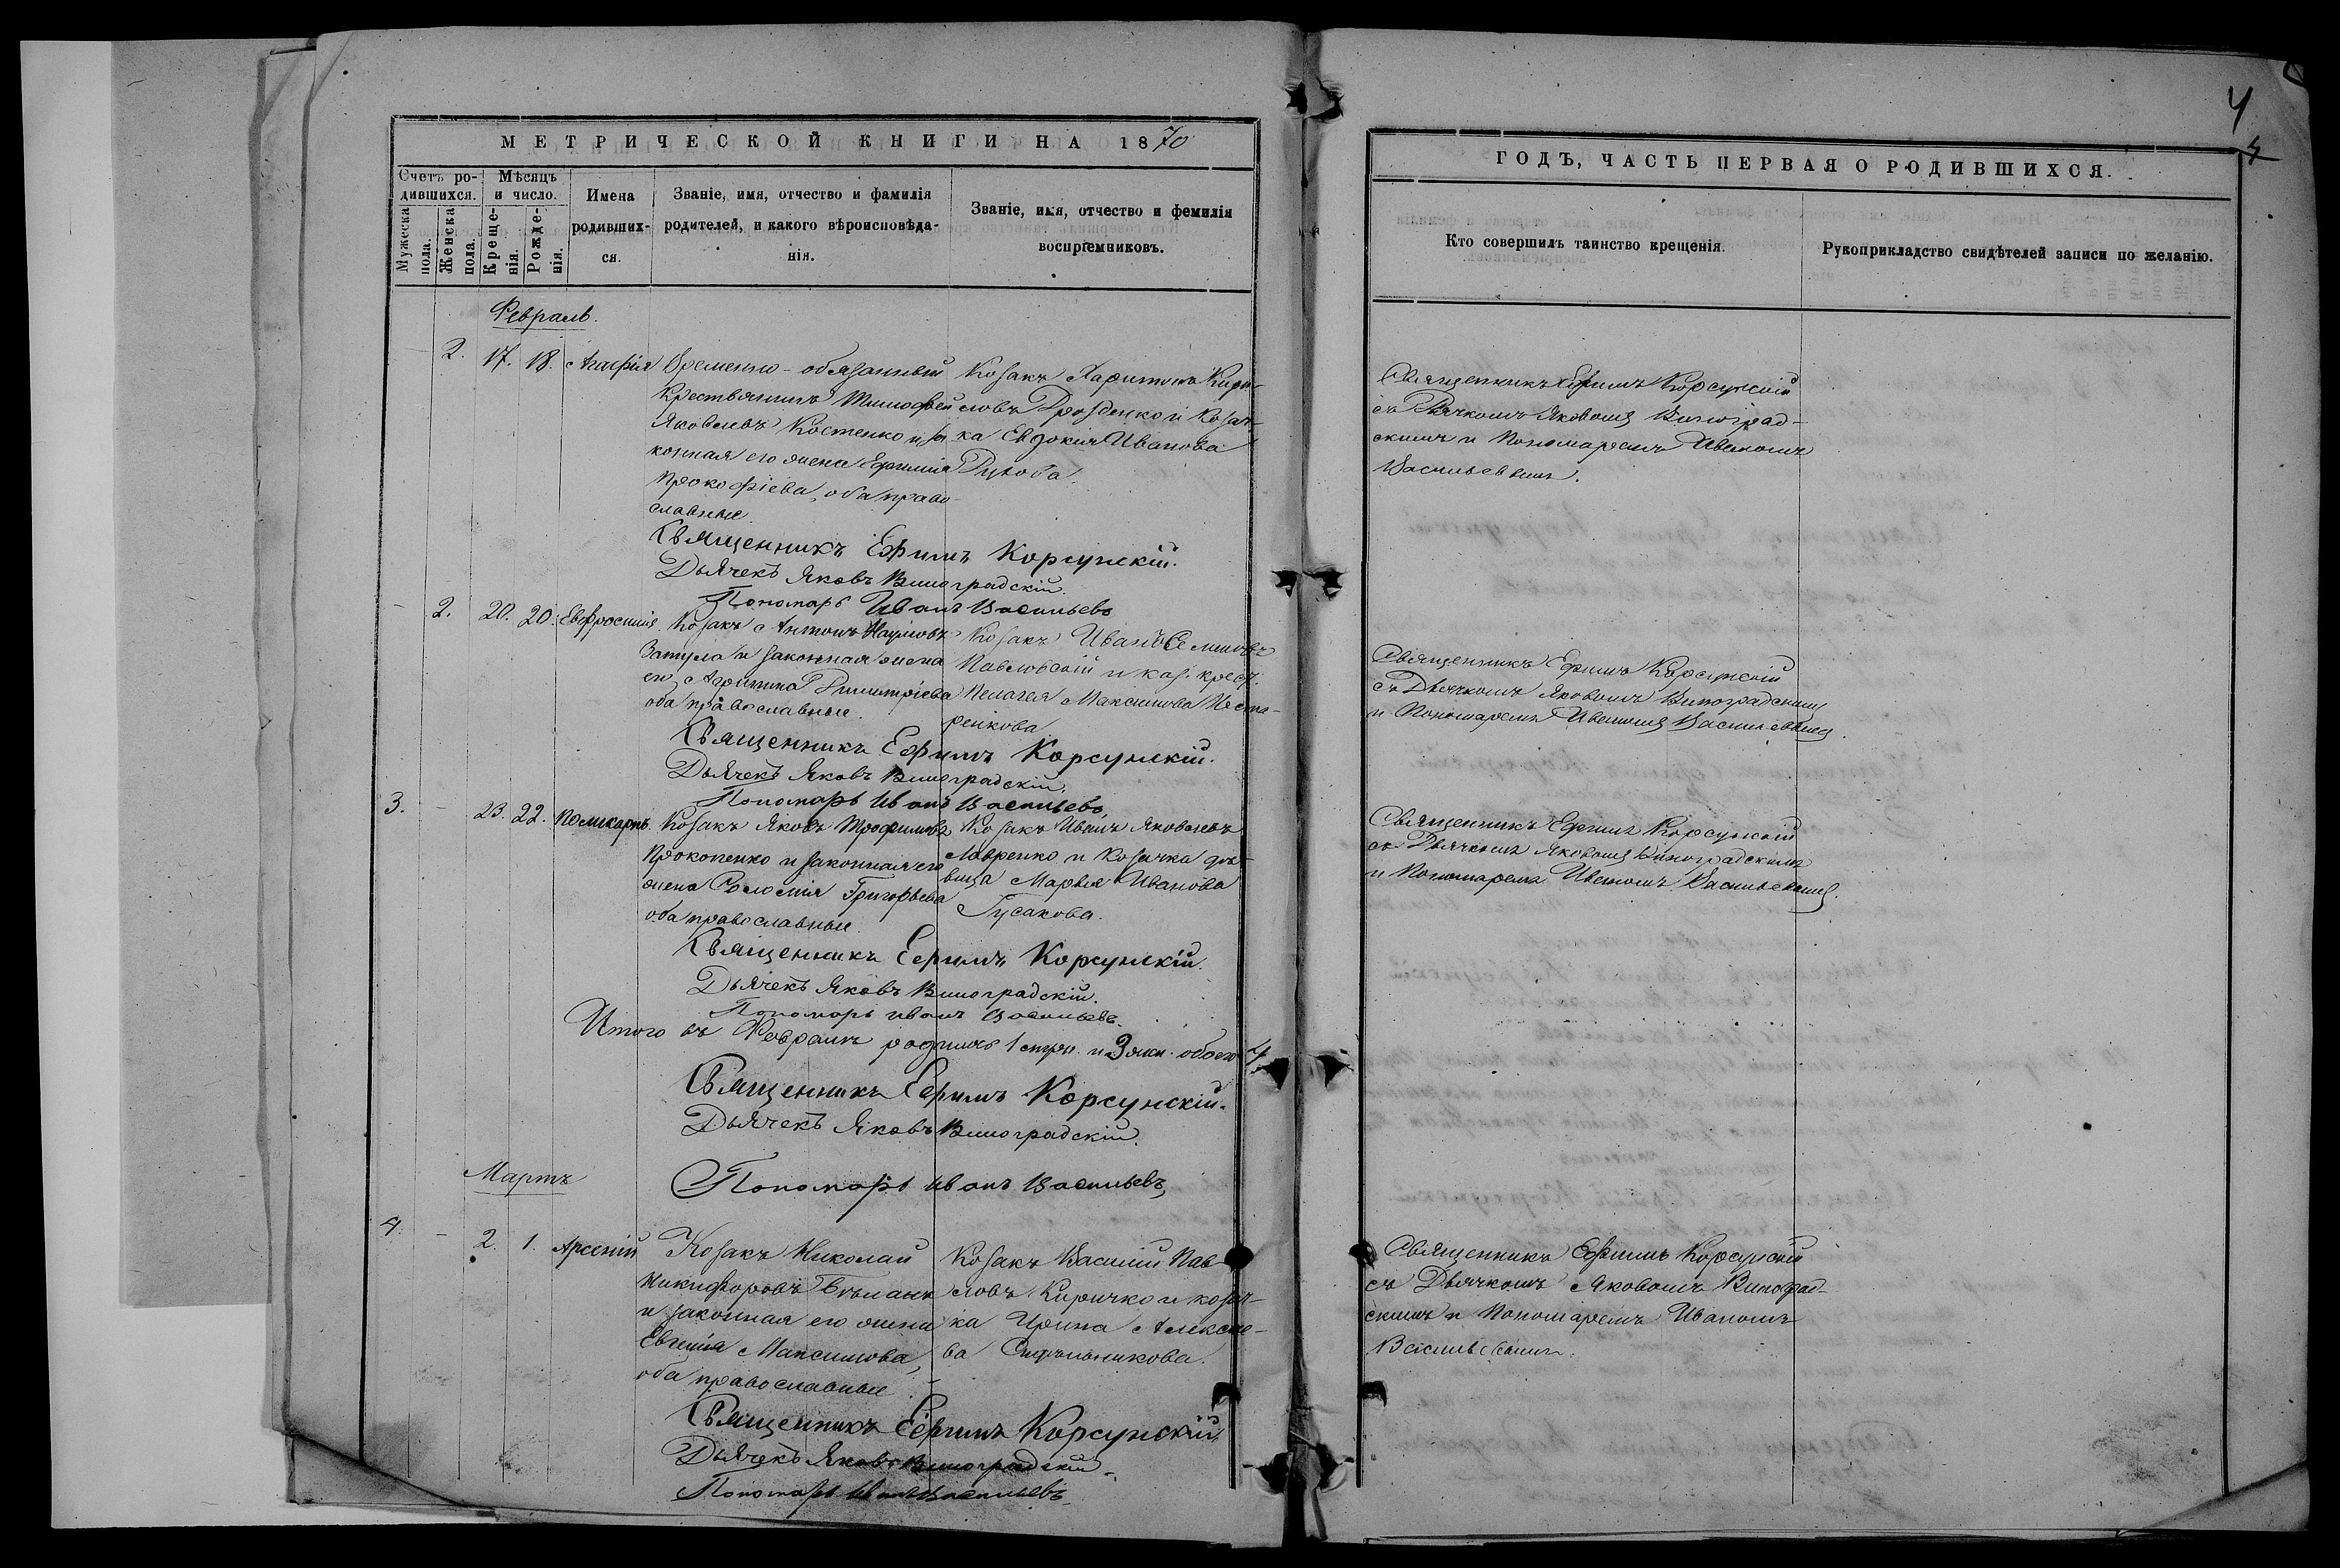 МЕТРИЧЕСКОЙ КНИГИ НА 1870
Счетъ родившихся.
Мѣсяцъ и число.
Мужеска пола.
Женска пола.
Крещенія.
Рожденія.
Имена родившихся.
Званіе, имя, отчество и фамилія
родителей, и какого вѣроисповѣда-
нія.
Званіе, имя, отчество и фемилія
воспріемниковъ.
Февраль.
2. 17. 18. Агафія
Временно-обязанный
Крестьянинъ Тимофей
Яковлевъ Костенко и за
конная его жена Ефимія
Прокофіева, оба право
славные.
Козакъ Харитонъ Кири-
ловъ Дрозденко и Козач-
ка Евдокія Иванова
Священникъ Ефимъ Корсунскій.
Дьячекъ Яковъ Виноградскій.
Пономарь Иванъ Васильевъ
2. 20. 20. Евфросинія.
Козакъ Антонъ Наумовъ
и законная жена
его Агрипина Димитріева
оба православные.
Козакъ Иванъ Семеновъ
Павловскій и каз. крест.
Пелагея Максимова Несте-
ренкова
Священникъ Ефимъ Корсунскій.
Дьячекъ Яковъ Виноградскій.
Пономарь Иванъ Васильевъ
3. - 23. 22. Поликарпъ.
Козакъ Яковъ Трофимовъ
Прокопенко и законная его
жена Соломія Григорьева
оба православные.
Козакъ Иванъ Яковлевъ
Лавренко и Козачка дѣ-
вица Марья Иванова
Гусакова.
Священникъ Ефимъ Корсунскій.
Дьячекъ Яковъ Виноградскій.
Пономарь Иванъ Васильевъ.
Итого въ Февралѣ родилось 1 и 3 жен. обоего 4
Священникъ Ефимъ Корсунскій.
Дьячекъ Яковъ Виноградскій.
Пономарь Иванъ Васильевъ
Мартъ
4. - 2. 1. Арсеній
Козакъ Николай
Никифоровъ
и законная его жена
Евгенія Максимова,
оба православные.
Козакъ Василій Пав
ловъ Киричко и козач-
ка Ирина Алексѣе-
ва
Священникъ Ефимъ Корсунскій.
Дьячекъ Яковъ Виноградскій.
Пономарь Иванъ Васильевъ
4
4
ГОДЪ, ЧАСТЬ ПЕРВАЯ О РОДИВШИХСЯ.
Кто совершилъ таинство крещенія.
Рукоприкладство свидѣтелей записи по желанію.
Священникъ Ефимъ Корсунскій
съ Дьячкомъ Яковомъ Виноград-
скимъ и Пономаремъ Иваномъ
Васильевымъ.
Священникъ Ефимъ Корсунскій
съ Дьячкомъ Яковомъ Виноградскимъ
и Пономаремъ Иваномъ Васильевымъ.
Священникъ Ефимъ Корсунскій
съ Дьячкомъ Яковомъ Виноградскимъ
и Пономаремъ Иваномъ Васильевымъ.
Священникъ Ефимъ Корсунскій
съ Дьячкомъ Яковомъ Виноград-
скимъ и Пономаремъ Иваномъ
Васильевымъ.